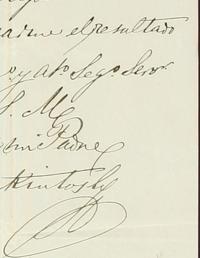 el resultado
y at.o Seg.o Serv.r
S. M.
mi Padre
Kintosh